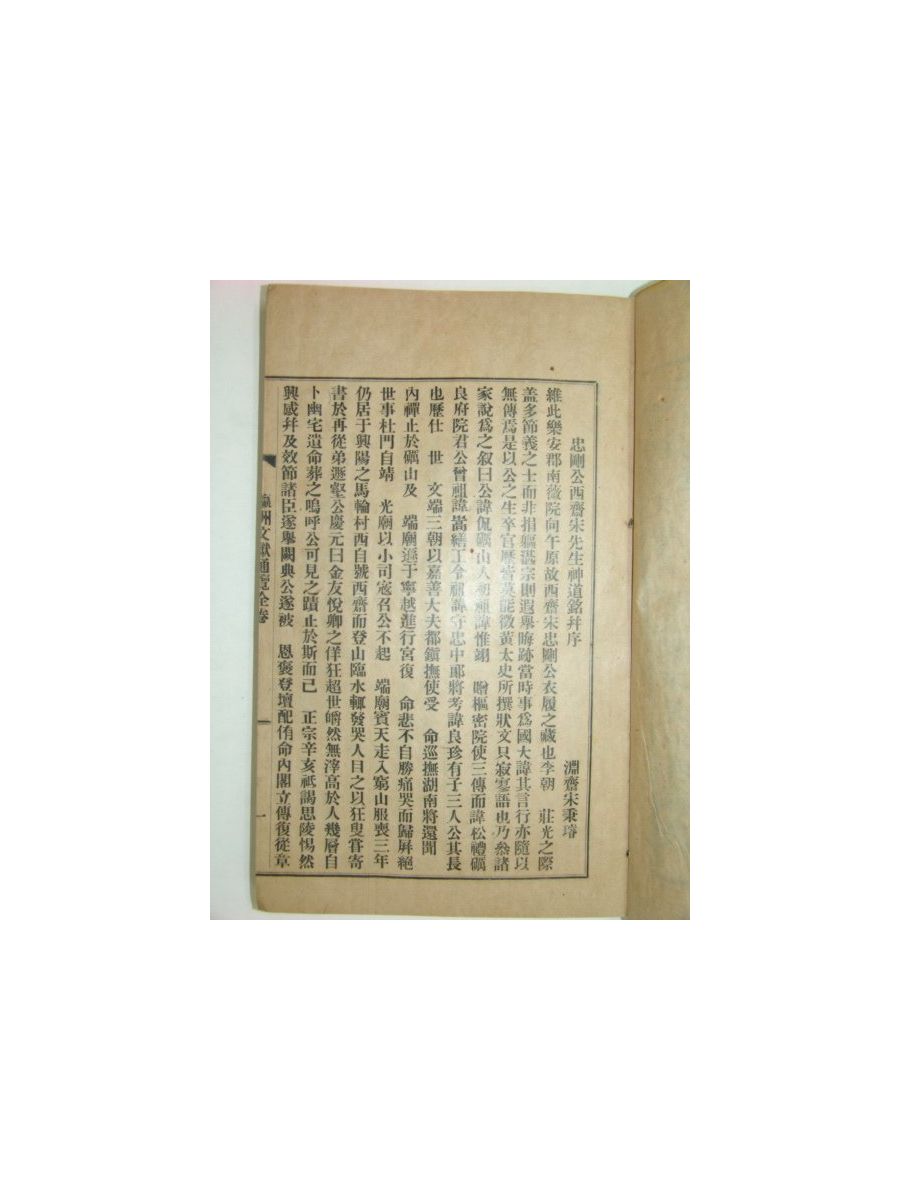 忠剛公西齋宋先生神道銘幷序
淵齋宋秉璿
維此樂安郡南薇院向午原故西齋宋忠剛公衣履之藏也李朝 莊光之際
盖多節義之士而非捐軀湛宗則遐擧晦跡當時事爲國大諱其言行亦隨以
無傳焉是以公之生卒官歷皆莫能徵黃太史所撰狀文只寂寥語也乃叅諸
家說爲之叙曰公諱侃礪山人初祖諱惟翊 贈樞密院使三傳而諱松禮礪
良府院君公曾祖諱嵩繕工令祖諱守忠中郞將考諱良珍有子三人公其長
也歷仕 世 文端三朝以嘉善大夫都鎭撫使受 命巡撫湖南將還聞
內禪止於礪山及 端廟遜于寧越進行宮復 命悲不自勝痛哭而歸屛絕
世事杜門自靖 光廟以小司寇召公不起 端廟賓天走入窮山服喪三年
仍居于興陽之馬輪村西自號西齋而登山臨水輒發哭人目之以狂叟甞寄
書於再從弟遯壑公慶元曰金友悅卿之佯狂超世皭然無滓高於人幾層自
卜幽宅遺命葬之嗚呼公可見之蹟止於斯而已 正宗辛亥祗謁思陵惕然
興感幷及效節諸臣遂擧闕典公遂被 恩褒登壇配侑命內閣立傳復從章
瀛州文獻通 全卷
一